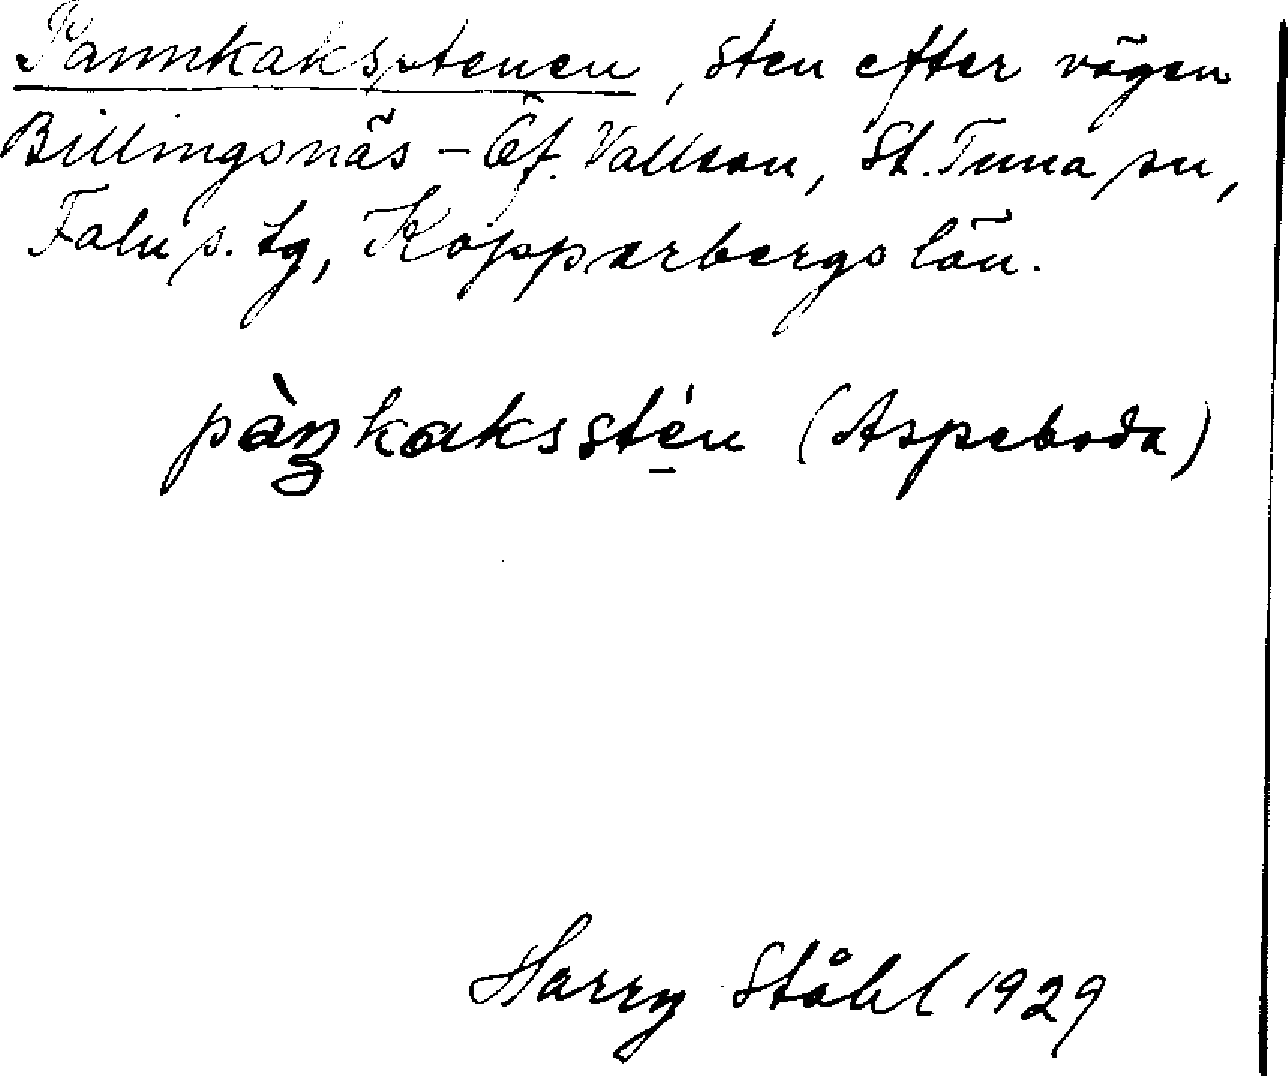 Pannkaksstenen, sten efter vägen
Billingsnäs – Öf. Vallson, St. Tuna sn,
Falu s. tg, Kopparbergs län.
pàn̥kaksstén (Aspeboda)
Harry Ståhl 1929